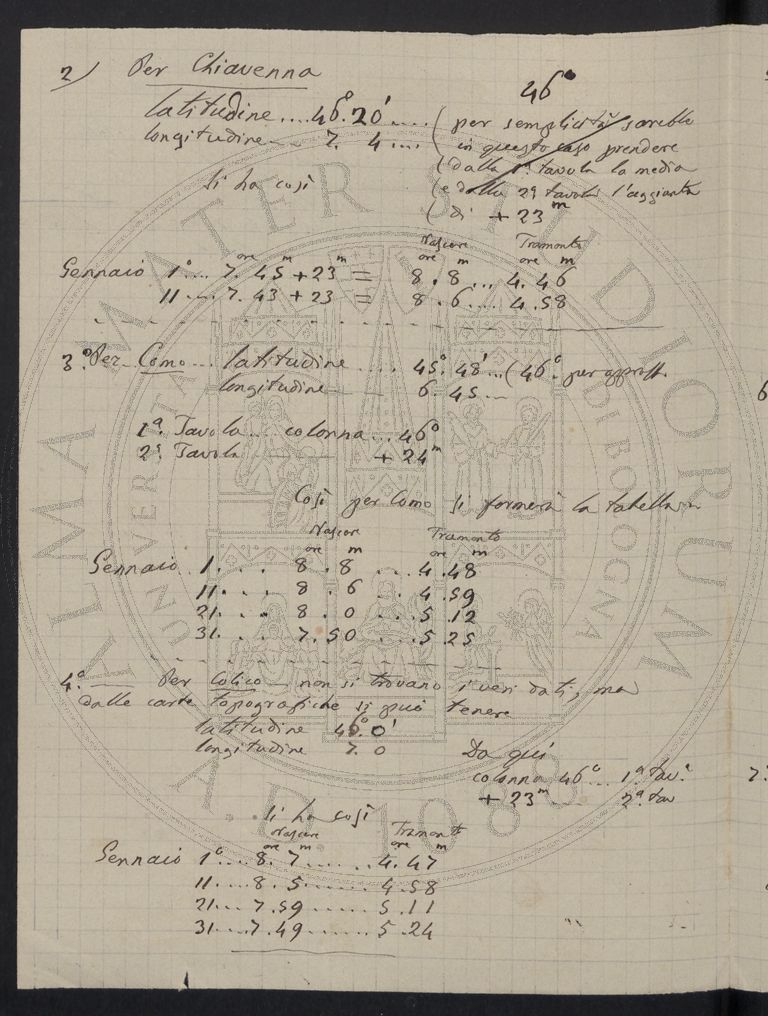 2) Per Chiavenna
46°
latitudine .... 46°.20' .... ( per semplicità sarebbe
longitudine — 7. 4 ... ( in questo caso prendere
( dalla 1ª tavola la media
Si ha così ( e dalla 2ª tavola l'aggiunta
( di + 23 m
Nascere Tramonto
ore m ore m
ore m m
Gennaio 1° ... 7. 45 + 23 = 8 . 8 ... 4. 46
11 ... 7. 43 + 23 = 8 . 6 ... 4 .58
3° Per Como ... latitudine .... 45°. 48' ... ( 46° per appross.
longitudine — 6. 45 —
1ª. Tavola ... colonna ... 46°
2ª. Tavola + 24 m
Così per Como si formerà la tabella
Nascere Tramonto
ore m ore m
Gennaio 1. . . 8 . 8 ... 4 .48
11. . . 8 . 6 . 4 .59
21. . . 8 . 0 ... 5 .12
31. . . 7.50 .... 5 .25
4.° — Per Colico — non si trovano i veri dati, ma
dalle carte topografiche si può tenere
latitudine 46° 0'
longitudine 7. 0 Da qui
colonna 46° ... 1ª tav.
+ 23 m 2ª. tav
Si ha così
Nascere Tramonto
ore m ore m
Gennaio 1° .... 8. 7 ...... 4. 47
11 .... 8. 5 ...... 4 .58
21 ... 7 .59 ...... 5 .11
31 ... 7 .49 ...... 5 .24
ALMA MATER STUDIORUM
UNIVERSITA DI BOLOGNA
A.D. 1088